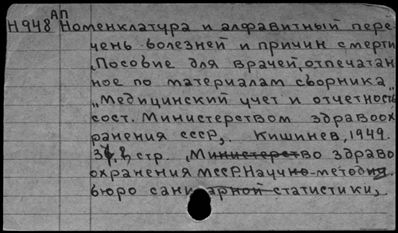 АП
Н948 Номенклатура и алфавитный пере-
чень болезней и причин смерти
„Пособие для врачей, отпечатан
ное по материалам сборника„
„Медицинский учет и отчетность
сост. Министерством здравоох
ранения СССР„. Кишинев, 1949.
стр. /Министерство здраво
охранения МССР. Научно-методич.
бюро санитарной статистики/.